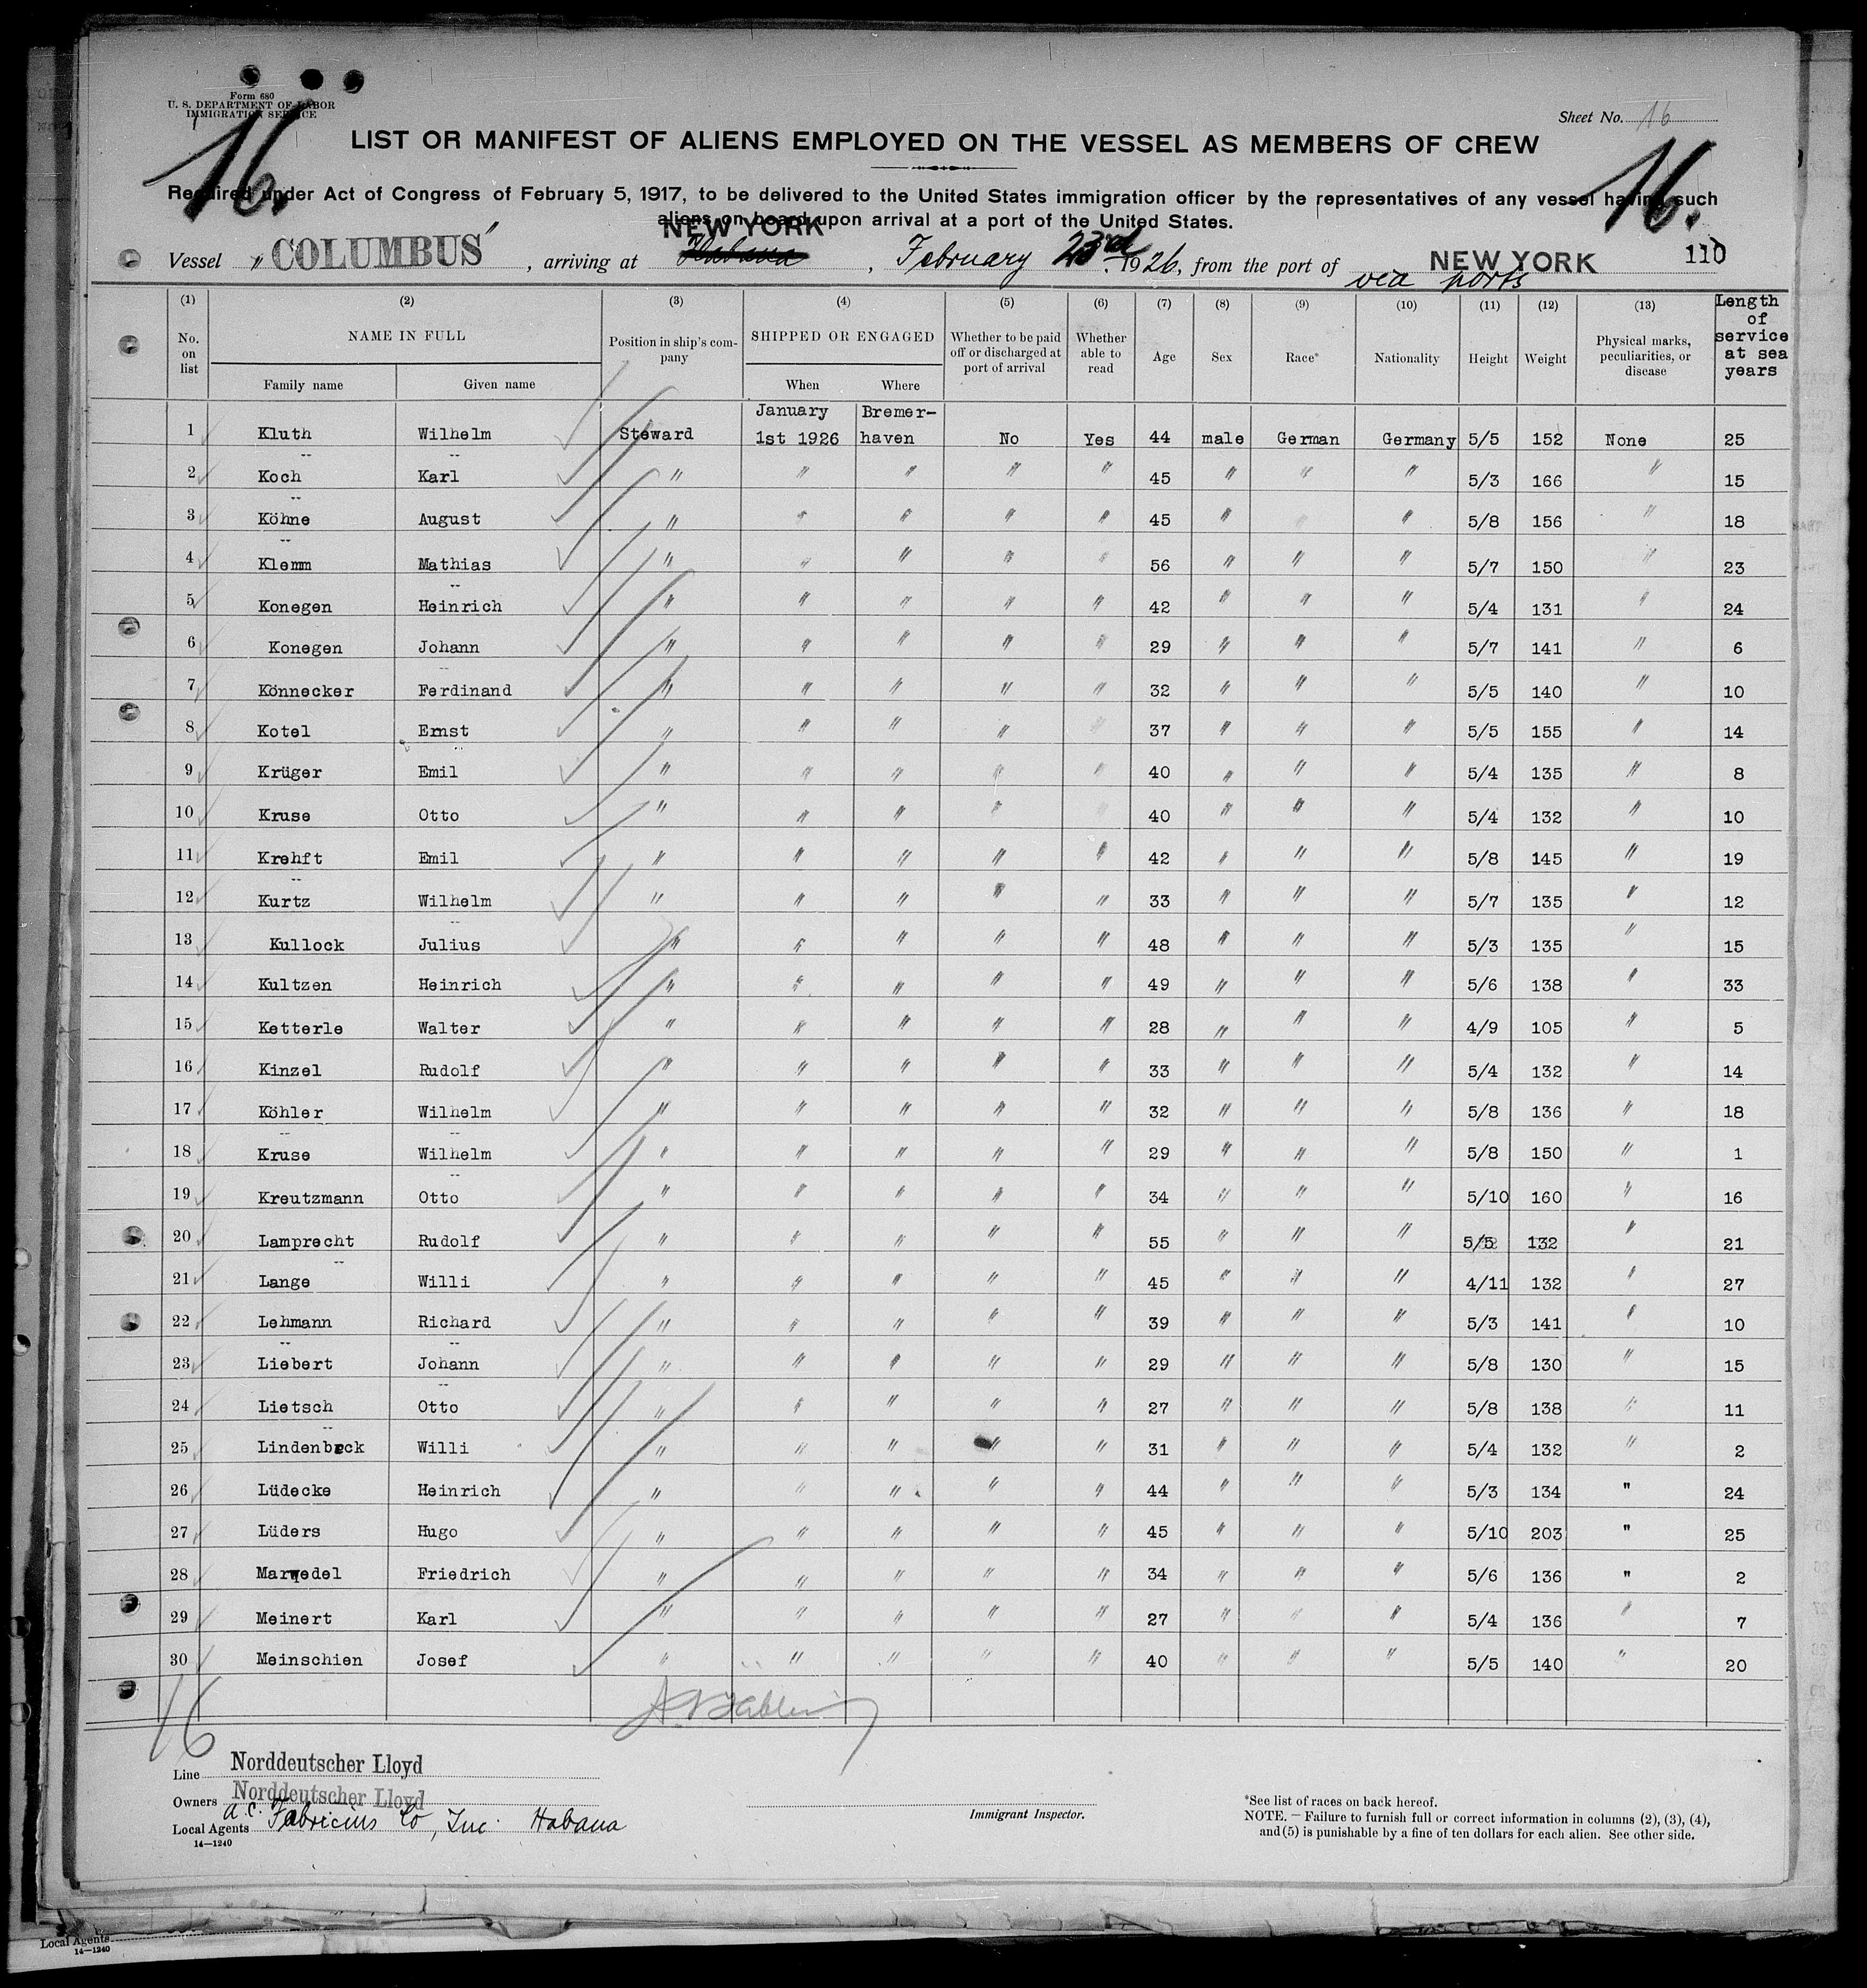 Form 680
U. S. DEPARTMENT OF LABOR
IMMIGRATION SERVICE
Sheet No. 16
16.
16.
LIST OR MANIFEST OF ALIENS EMPLOYED ON THE VESSEL AS MEMBERS OF CREW
Required under Act of Congress of February 5, 1917, to be delivered to the United States immigration officer by the representatives of any vessel having such
aliens on board upon arrival at a port of the United States.
NEW YORK
Vessel " COLUMBUS" , arriving at Habana , February 23rd 1926, from the port of NEW YORK 110
via ports
(1) (2) (3) (4) (5) (6) (7) (8) (9) (10) (11) (12) (13) Length of service at sea years
No. on list NAME IN FULL Position in ship's company SHIPPED OR ENGAGED Whether to be paid off or discharged at port of arrival Whether able to read Age Sex Race* Nationality Height Weight Physical marks, peculiarities, or disease
Family name Given name When Where
January Bremer-
1 Kluth Wilhelm Steward 1st 1926 haven No Yes 44 male German Germany 5/5 152 None 25
2 Koch Karl " " " " " 45 " " " 5/3 166 " 15
3 Köhne August " " " " " 45 " " " 5/8 156 " 18
4 Klemm Mathias " " " " " 56 " " " 5/7 150 " 23
5 Konegen Heinrich " " " " " 42 " " " 5/4 131 " 24
6 Konegen Johann " " " " " 29 " " " 5/7 141 " 6
7 Könnecker Ferdinand " " " " " 32 " " " 5/5 140 " 10
8 Kotel Ernst " " " " " 37 " " " 5/5 155 " 14
9 Krüger Emil " " " " " 40 " " " 5/4 135 " 8
10 Kruse Otto " " " " " 40 " " " 5/4 132 " 10
11 Krehft Emil " " " " " 42 " " " 5/8 145 " 19
12 Kurtz Wilhelm " " " " " 33 " " " 5/7 135 " 12
13 Kullock Julius " " " " " 48 " " " 5/3 135 " 15
14 Kultzen Heinrich " " " " " 49 " " " 5/6 138 " 33
15 Ketterle Walter " " " " " 28 " " " 4/9 105 " 5
16 Kinzel Rudolf " " " " " 33 " " " 5/4 132 " 14
17 Köhler Wilhelm " " " " " 32 " " " 5/8 136 " 18
18 Kruse Wilhelm " " " " " 29 " " " 5/8 150 " 1
19 Kreutzmann Otto " " " " " 34 " " " 5/10 160 " 16
20 Lamprecht Rudolf " " " " " 55 " " " 5/5 132 " 21
21 Lange Willi " " " " " 45 " " " 4/11 132 " 27
22 Lehmann Richard " " " " " 39 " " " 5/3 141 " 10
23 Liebert Johann " " " " " 29 " " " 5/8 130 " 15
24 Lietsch Otto " " " " " 27 " " " 5/8 138 " 11
25 Lindenbeck Willi " " " " " 31 " " " 5/4 132 " 2
26 Lüdecke Heinrich " " " " " 44 " " " 5/3 134 " 24
27 Lüders Hugo " " " " " 45 " " " 5/10 203 " 25
28 Marwedel Friedrich " " " " " 34 " " " 5/6 136 " 2
29 Meinert Karl " " " " " 27 " " " 5/4 136 " 7
30 Meinschien Josef " " " " " 40 " " " 5/5 140 " 20
16
Line Norddeutscher Lloyd
Owners Norddeutscher Lloyd
Local Agents A.C. Fabricius Co, Inc. Habana
14—1240
Immigrant Inspector.
*See list of races on back hereof.
NOTE.—Failure to furnish full or correct information in columns (2), (3), (4),
and (5) is punishable by a fine of ten dollars for each alien. See other side.
Local Agents
14—1240